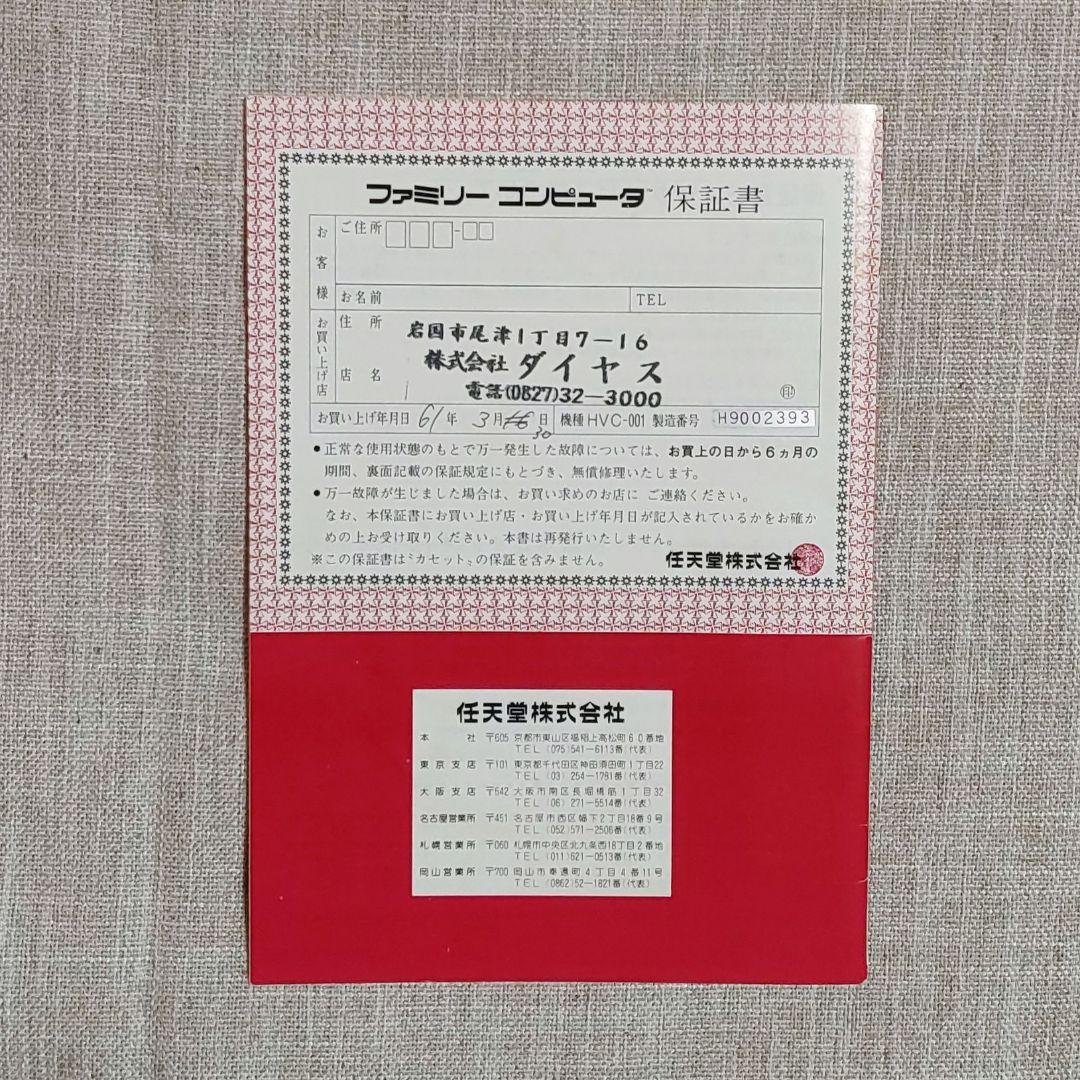 ファミリー コンピュータ™ 保証書
お客様
ご住所
お名前
TEL
お買い上げ店
住所
岩国市尾津1丁目7-16
株式会社 ダイヤス
店名
電話(0827)32-3000
印
お買い上げ年月日 61年 3月 30日 機種 HVC-001 製造番号 H9002393
●正常な使用状態のもとで万一発生した故障については、お買上の日から6ヵ月の
期間、裏面記載の保証規定にもとづき、無償修理いたします。
●万一故障が生じました場合は、お買い求めのお店に ご連絡ください。
なお、本保証書にお買い上げ店・お買い上げ年月日が記入されているかをお確か
めの上お受け取りください。本書は再発行いたしません。
※この保証書は〝カセット〟の保証を含みません。
任天堂株式会社
任天堂株式会社
本社 〒605 京都市東山区福稲上高松町60番地
TEL (075)541-6113番(代表)
東京支店 〒101 東京都千代田区神田須田町1丁目22
TEL (03) 254-1781番(代表)
大阪支店 〒542 大阪市南区長堀橋筋1丁目32
TEL (06) 271-5514番(代表)
名古屋営業所 〒451 名古屋市西区幅下2丁目18番9号
TEL (052)571-2506番(代表)
札幌営業所 〒060 札幌市中央区北九条西18丁目2番地
TEL (011)621-0513番(代表)
岡山営業所 〒700 岡山市奉還町4丁目4番11号
TEL (0862)52-1821番(代表)